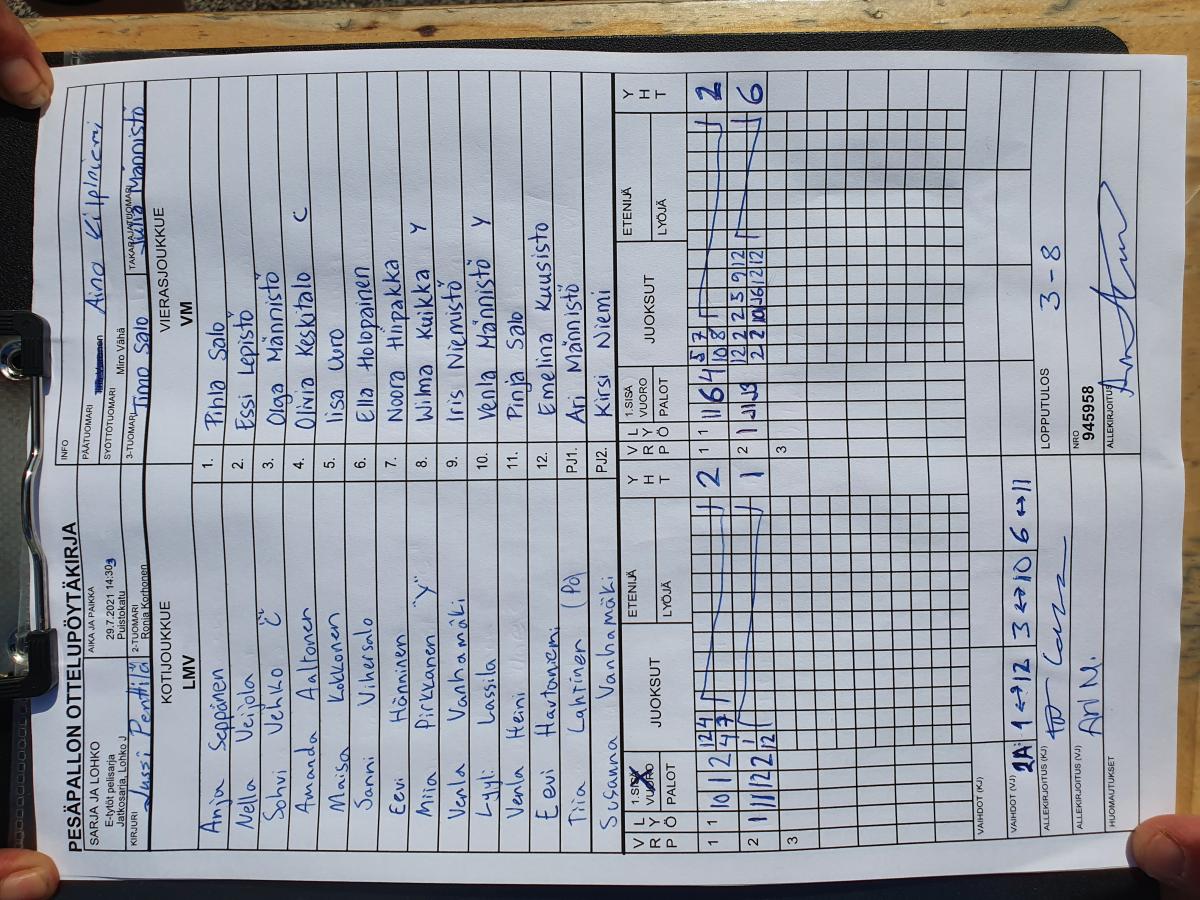 PESÄPALLON OTTELUPÖYTÄKIRJA
SARJA JA LOHKO
E-tytöt pelisarja
Jatkosarja, Lohko J
AIKA JA PAIKKA
29.7.2021 14:30
Puistokatu
INFO
PÄÄTUOMARI Aino Kilpiniemi
SYÖTTÖTUOMARI Miro Vähä
KIRJURI Jussi Penttilä
2-TUOMARI Ronja Korhonen
3-TUOMARI Timo Salo
TAKARAJATUOMARI Julia Männistö
KOTIJOUKKUE VIERASJOUKKUE
LMV VM
Anja Seppänen 1. Pihla Salo
Nella Veijola 2. Essi Lepistö
Sohvi Vehko C 3. Olga Männistö
Amanda Aaltonen 4. Olivia Keskitalo C
Maisa Kokkonen 5. Iisa Uuro
Sanni Vihersalo 6. Ella Holopainen
Eevi Hänninen 7. Noora Hiipakka
Miia Pirkkanen "Y" 8. Wilma Kuikka Y
Venla Vanhamäki 9. Iris Niemistö
Lyyli Lassila 10. Venla Männistö Y
Venla Heini 11. Pinja Salo
Eevi Hautaniemi 12. Emelina Kuusisto
Tiia Lahtinen (PJ) PJ1. Ari Männistö
Susanna Vanhamäki PJ2. Kirsi Niemi
V R L Y Ö P 1.SISÄ VUORO PALOT JUOKSUT ETENIJÄ LYÖJÄ Y H T V R L Y Ö P 1.SISÄ VUORO PALOT JUOKSUT ETENIJÄ LYÖJÄ Y H T
1 10 1 2 12 4 2 1 11 6 4 5 7 2
4 7 10 8
2 1 11 12 2 1 1 2 1 12 2 2 5 9 12 6
12 2 2 10 12 12
3 3
VAIHDOT (KJ)
VAIHDOT (VJ) 2A: 1↔12 3↔10 6↔11
ALLEKIRJOITUS (KJ)
LOPPUTULOS 3-8
ALLEKIRJOITUS (VJ) Ari M.
NRO 945958
HUOMAUTUKSET
ALLEKIRJOITUS